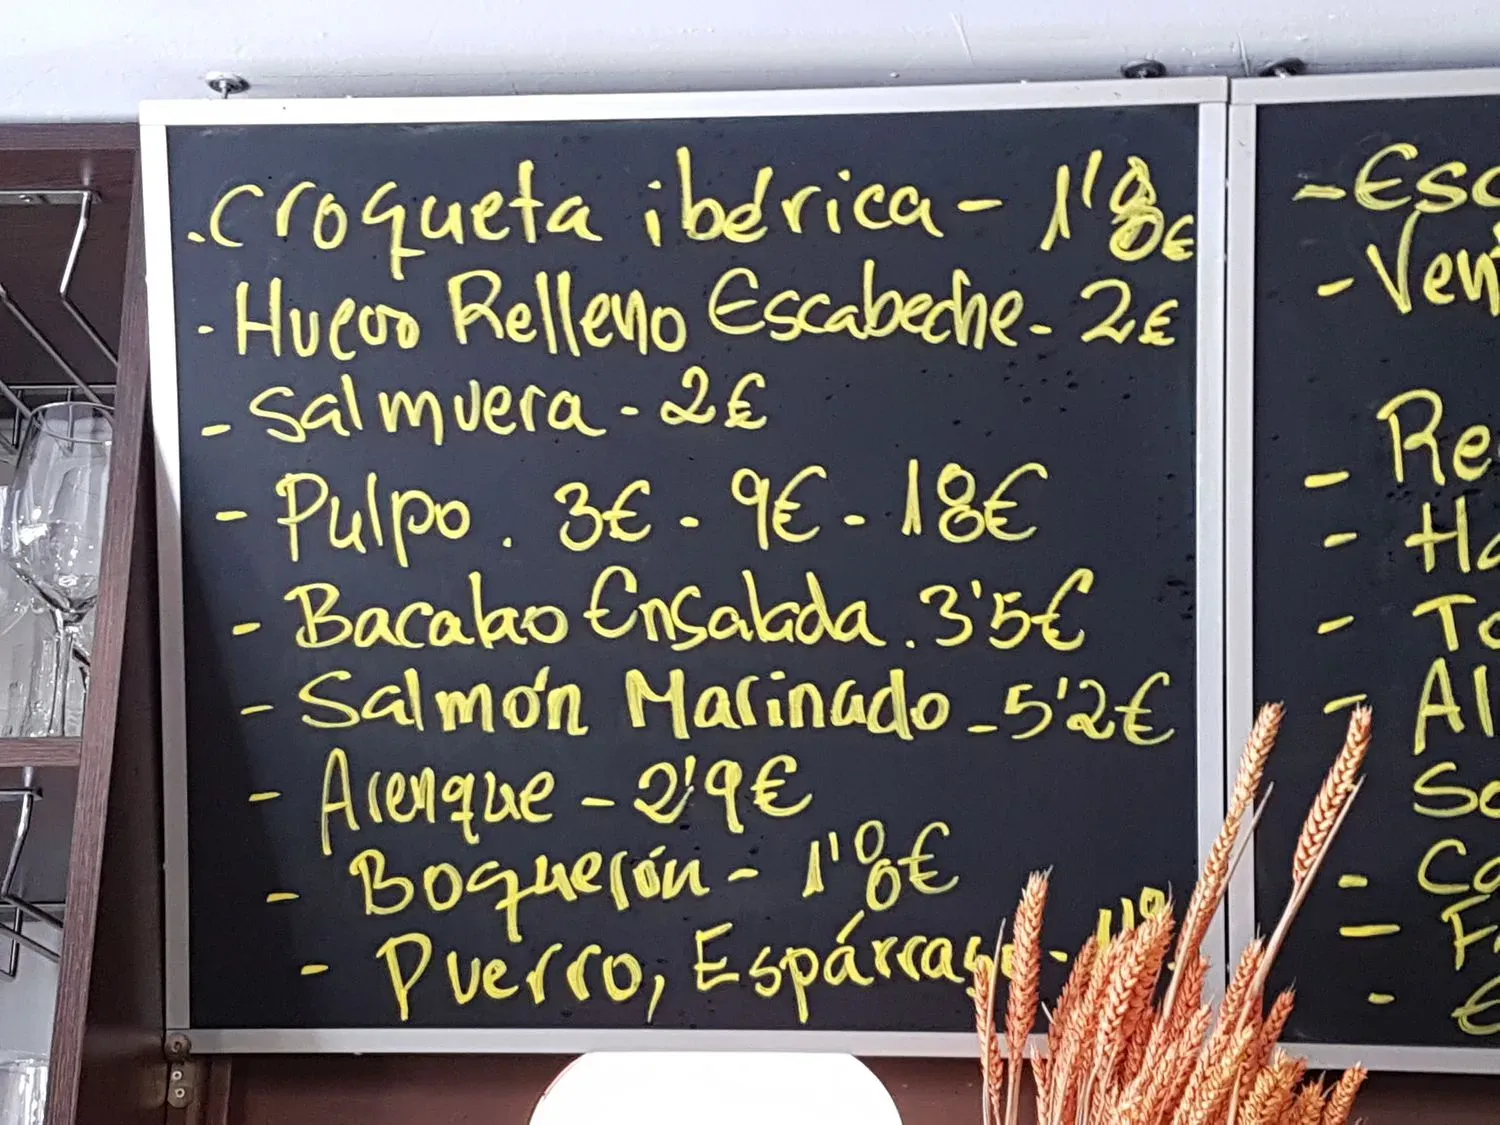 .Croqueta ibérica - 1'8€
- Huevo Relleno Escabeche - 2€
- Salmuera - 2€
- Pulpo . 3€ - 9€ - 18€
- Bacalao Ensalada . 3'5€
- Salmón Marinado - 5'2€
- Arenque - 2'9€
- Boquerón - 1'8€
- Puerro, Espárrago -
- Esc
- Ven
- Re
- Ha
- To
- Al
So
- Ca